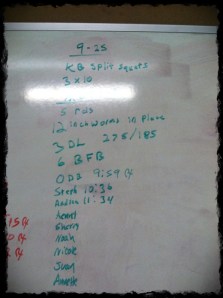 9-25
KB Split Squats
3 x 10
5 rds
12 inchworms in place
3 DL 275/185
6 BFB
ODB 9:59 Rx
Steph 10:36
Andrea 11:34
Kenet
Sherry
Noah
Nicole
Juan
Annette